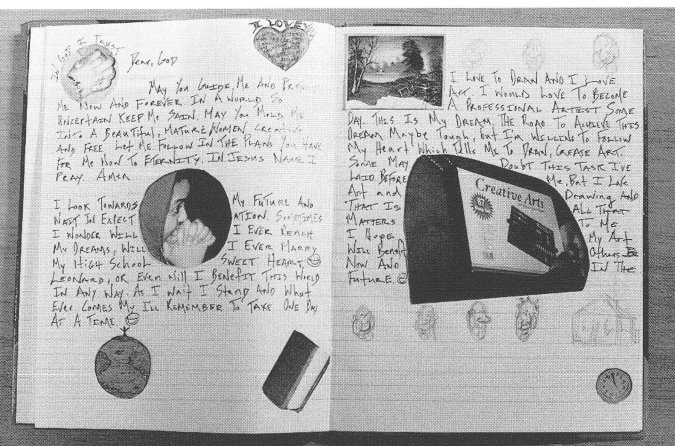 IN GOD I TRUST
I LOVE
Dear, GOD
MAY YOU GUIDE, ME AND
ME NOW AND FOREVER IN A WORLD SO
UNCERTAIN KEEP ME SAIN. MAY YOU MOLD ME
INTO A BEAUTIFUL, MATURE, WOMEN, CREATIVE
AND FREE LET ME FOLLOW IN THE PLANS YOU HAVE
FOR ME NOW TO ETERNITY. IN JESUS NAME I
PRAY AMEN
I LOOK TOWARDS MY FUTURE AND
WAIT IN EXFEST ATION. SOMETIMES
I WONDER WILL I EVER REACH
MY DREAMS, WILL I EVER MARRY
MY HIGH SCHOOL SWEET HEART
LEONARD, OR EVEN WILL I BENEFIT THIS WORLD
IN ANY WAY. AS I WAIT I STAND AND WHAT
EVER COMES MY ILL REMEMBER TO TAKE ONE DAY
AT A TIME
I LOVE TO DRAW AND I LOVE
ART. I WOULD LOVE TO BECOME
A PROFESSIONAL ARTIST SOME
DAY. THIS IS MY DREAM THE ROAD TO ACHIEVE THIS
DREAM MAYBE TOUGH, BUT I'M WILLING TO FOLLOW
MY HEART WHICH TELLS ME TO DRAW, CREATE ART.
SOME MAY DOUBT THIS TASK I'VE
LAID BEFORE ME. BUT I LOVE
ART AND DRAWING AND
THAT IS ALL THAT
MATTERS TO ME
I HOPE MY ART
WILL BENEFIT OTHERS
NOW AND IN THE
FUTURE.
Creative Arts